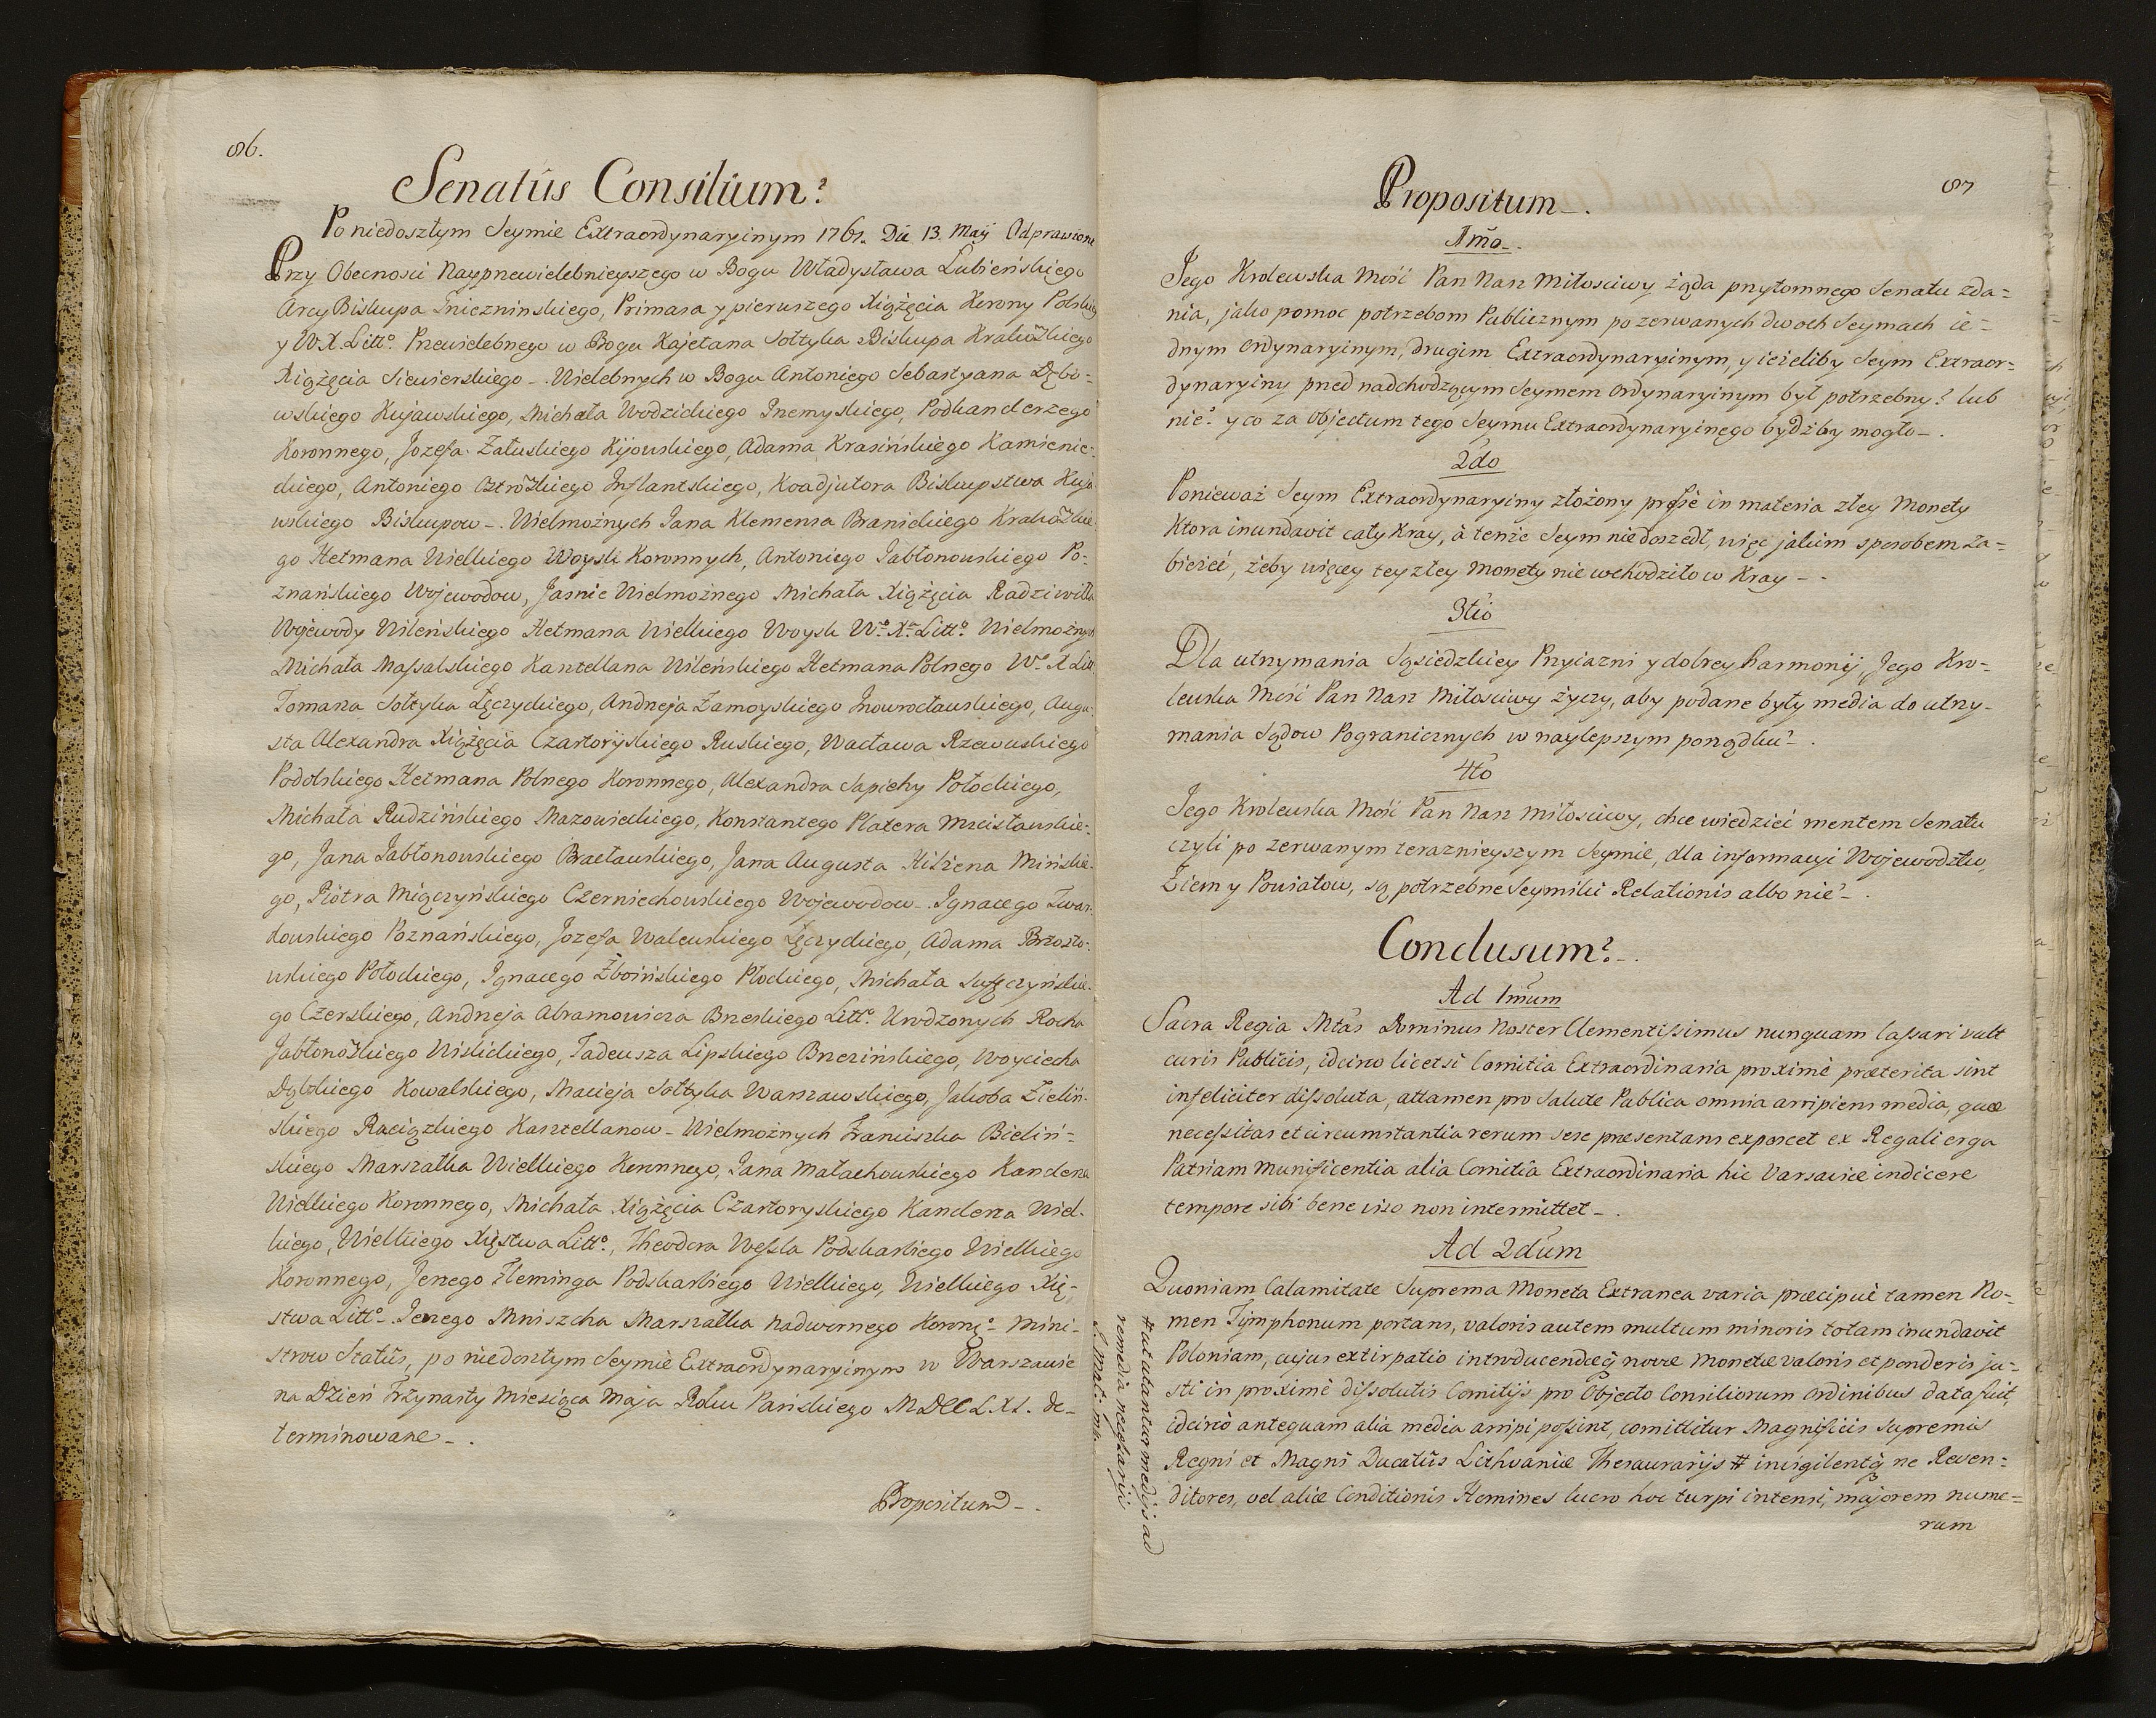 86.
Senatûs Consilium?
Po niedoszłym Seymie Extraordynaryinym 1761. Die 13. Maij Odprawione
Przy Obecnosci Nayprzewielebnieyszego w Bogu Władysława Łubieńskiego
Arcy Biskupa Gniezninskiego, Primasa y pierwszego Xiążęcia Korony Polskiey
y W.X. Litto. Przewielebnego w Bogu Kajetana Sołtyka Biskupa Krakowskiego
Xiążęcia Siewierskiego_. Wielebnych w Bogu Antoniego Sebastyana Dębo=
wskiego Kujawskiego, Michała Wodzickiego Przemyskiego, Podkanclerzego
Koronnego, Jozefa Załuskiego Kijowskiego, Adama Krasińskiego Kamienie=
ckiego, Antoniego Ostrowskiego Inflantskiego, Koadjutora Biskupstwa Kuja
wskiego Biskupow_. Wielmożnych Jana Klemensa Branickiego Krakowskie
go Hetmana Wielkiego Woysk Koronnych, Antoniego Jabłonowskiego Po=
znańskiego Wojewodow, Jasnie Wielmożnego Michała Xiążęcia Radziwiłła
Wojewody Wileńskiego Hetmana Wielkiego Woysk Wo. Xa. Litto. Wielmożnych
Michała Massalskiego Kasztellana Wileńskiego Hetmana Polnego Wo. X Litt
Tomasza Sołtyka Łęczyckiego, Andrzeja Zamoyskiego Inowrocławskiego, Augu=
sta Alexandra Xiążęcia Czartoryskiego Ruskiego, Wacława Rzewuskiego
Podolskiego Hetmana Polnego Koronnego, Alexandra Sapiehy Połockiego,
Michała Rudzińskiego Mazowieckiego, Konstantego Platera Mscisławskie=
go, Jana Jabłonowskiego Bracławskiego, Jana Augusta Hilzena Mińskie=
go, Piotra Miączyńskiego Czerniechowskiego Wojewodow_. Ignacego Twar=
dowskiego Poznańskiego, Jozefa Walewskiego Łęczyckiego, Adama Brzosto=
wskiego Połockiego, Ignacego Zboińskiego Płockiego, Michała Suffczyńskie=
go Czerskiego, Andrzeja Abramowicza Brzeskiego Litto. Urodzonych Rocha
Jabłonowskiego Wislickiego, Tadeusza Lipskiego Brzezińskiego, Woyciecha
Dąbskiego Kowalskiego, Macieja Sołtyka Warszawskiego, Jakoba Zieliń=
skiego Raciązkiego Kasztellanow_ Wielmożnych Franciszka Bieliń=
skiego Marszałka Wielkiego Koronnego, Jana Małachowskiego Kanclerza
Wielkiego Koronnego, Michała Xiążęcia Czartoryskiego Kanclerza Wiel=
kiego, Wielkiego Xięstwa Litto., Theodora Wessla Podskarbiego Wielkiego
Koronnego, Jerzego Fleminga Podskarbiego Wielkiego, Wielkiego Xię=
stwa Litto_. Jerzego Mniszcha Marszałka Nadwornego Koronngo_ Mini=
strow Statûs, po niedoszłym Seymie Extraordynaryinym w Warszawie
na Dzień Trzynasty Miesiąca Maja Roku Pańskiego MDCCLXI. de_
terminowane_.
Propositum_.
87
Propositum_.
1mo_.
Jego Krolewska Mość Pan Nasz Miłosciwy żąda przytomnego Senatu zda=
nia, jako pomoc potrzebom Publicznym po zerwanych dwoch Seymach ie=
dnym Ordynaryinym, drugim Extraordynaryinym, y ieżeliby Seym Extraor=
dynaryiny przed nadchodzącym Seymem Ordynaryinym był potrzebny? lub
nie? y co za Objectum tego Seymu Extraordynaryinego bydźby mogło_.
2do
Ponieważ Seym Extraordynaryiny złożony prosie in materia złey Monety
Ktora inundavit cały Kray, à tenże Seym nie doszedł, więc jakim sposobem za=
bieżeć, żeby więcey tey złey Monety nie wchodziło w Kray_.
3tio
Dla utrzymania Sąsiedzkiey Przyiazni y dobrey harmonij, Jego Kro=
lewska Mość Pan Nasz Miłosciwy życzy, aby podane były media do utrzy=
mania Sądow Pogranicznych w naylepszym porządku?_.
4to
Jego Krolewska Mość Pan Nasz Miłosciwy, chce wiedzieć mentem Senatu
czyli po zerwanym teraznieyszym Seymie, dla informacyi Wojewodztw,
Ziem y Powiatow, są potrzebne Seymiki Relationis albo nie?_.
Conclusum?_.
Ad 1mum
Sacra Regia Mtas Dominus Noster Clementissimus nunquam lassari vult
curis Publicis, idcirco licet si Comitia Extraordinaria proximè præterita sint
infeliciter dissoluta, attamen pro Salute Publica omnia arripiens media, quæ
necessitas et circumstantia rerum sese præsentans exposcet ex Regali erga
Patriam munificentia alia Comitia Extraordinaria hic Varsaviæ indicere
tempore sibi bene viso non intermittet_.
Ad 2dum
Quoniam Calamitate Suprema Moneta Extranea varia præcipuè tamen No=
men Tymphonum portans, valoris autem multum minoris totam inundavit
Poloniam, cujus extirpatio introducendæq novæ Monetæ valoris et ponderis ju=
sti in proximè dissolutis Comitijs pro Objecto Consiliorum Ordinibus data fuit,
idcirco antequam alia media arripi possint, comittitur Magnificis Supremis
Regni et Magni Ducatûs Lithvaniæ Thesaurarijs # invigilentq ne Reven=
ditores, vel aliæ Conditionis Homines lucro hoc turpi intensi, majorem nume=
rum
# ut utantur medijs ad
remedia necessarijs